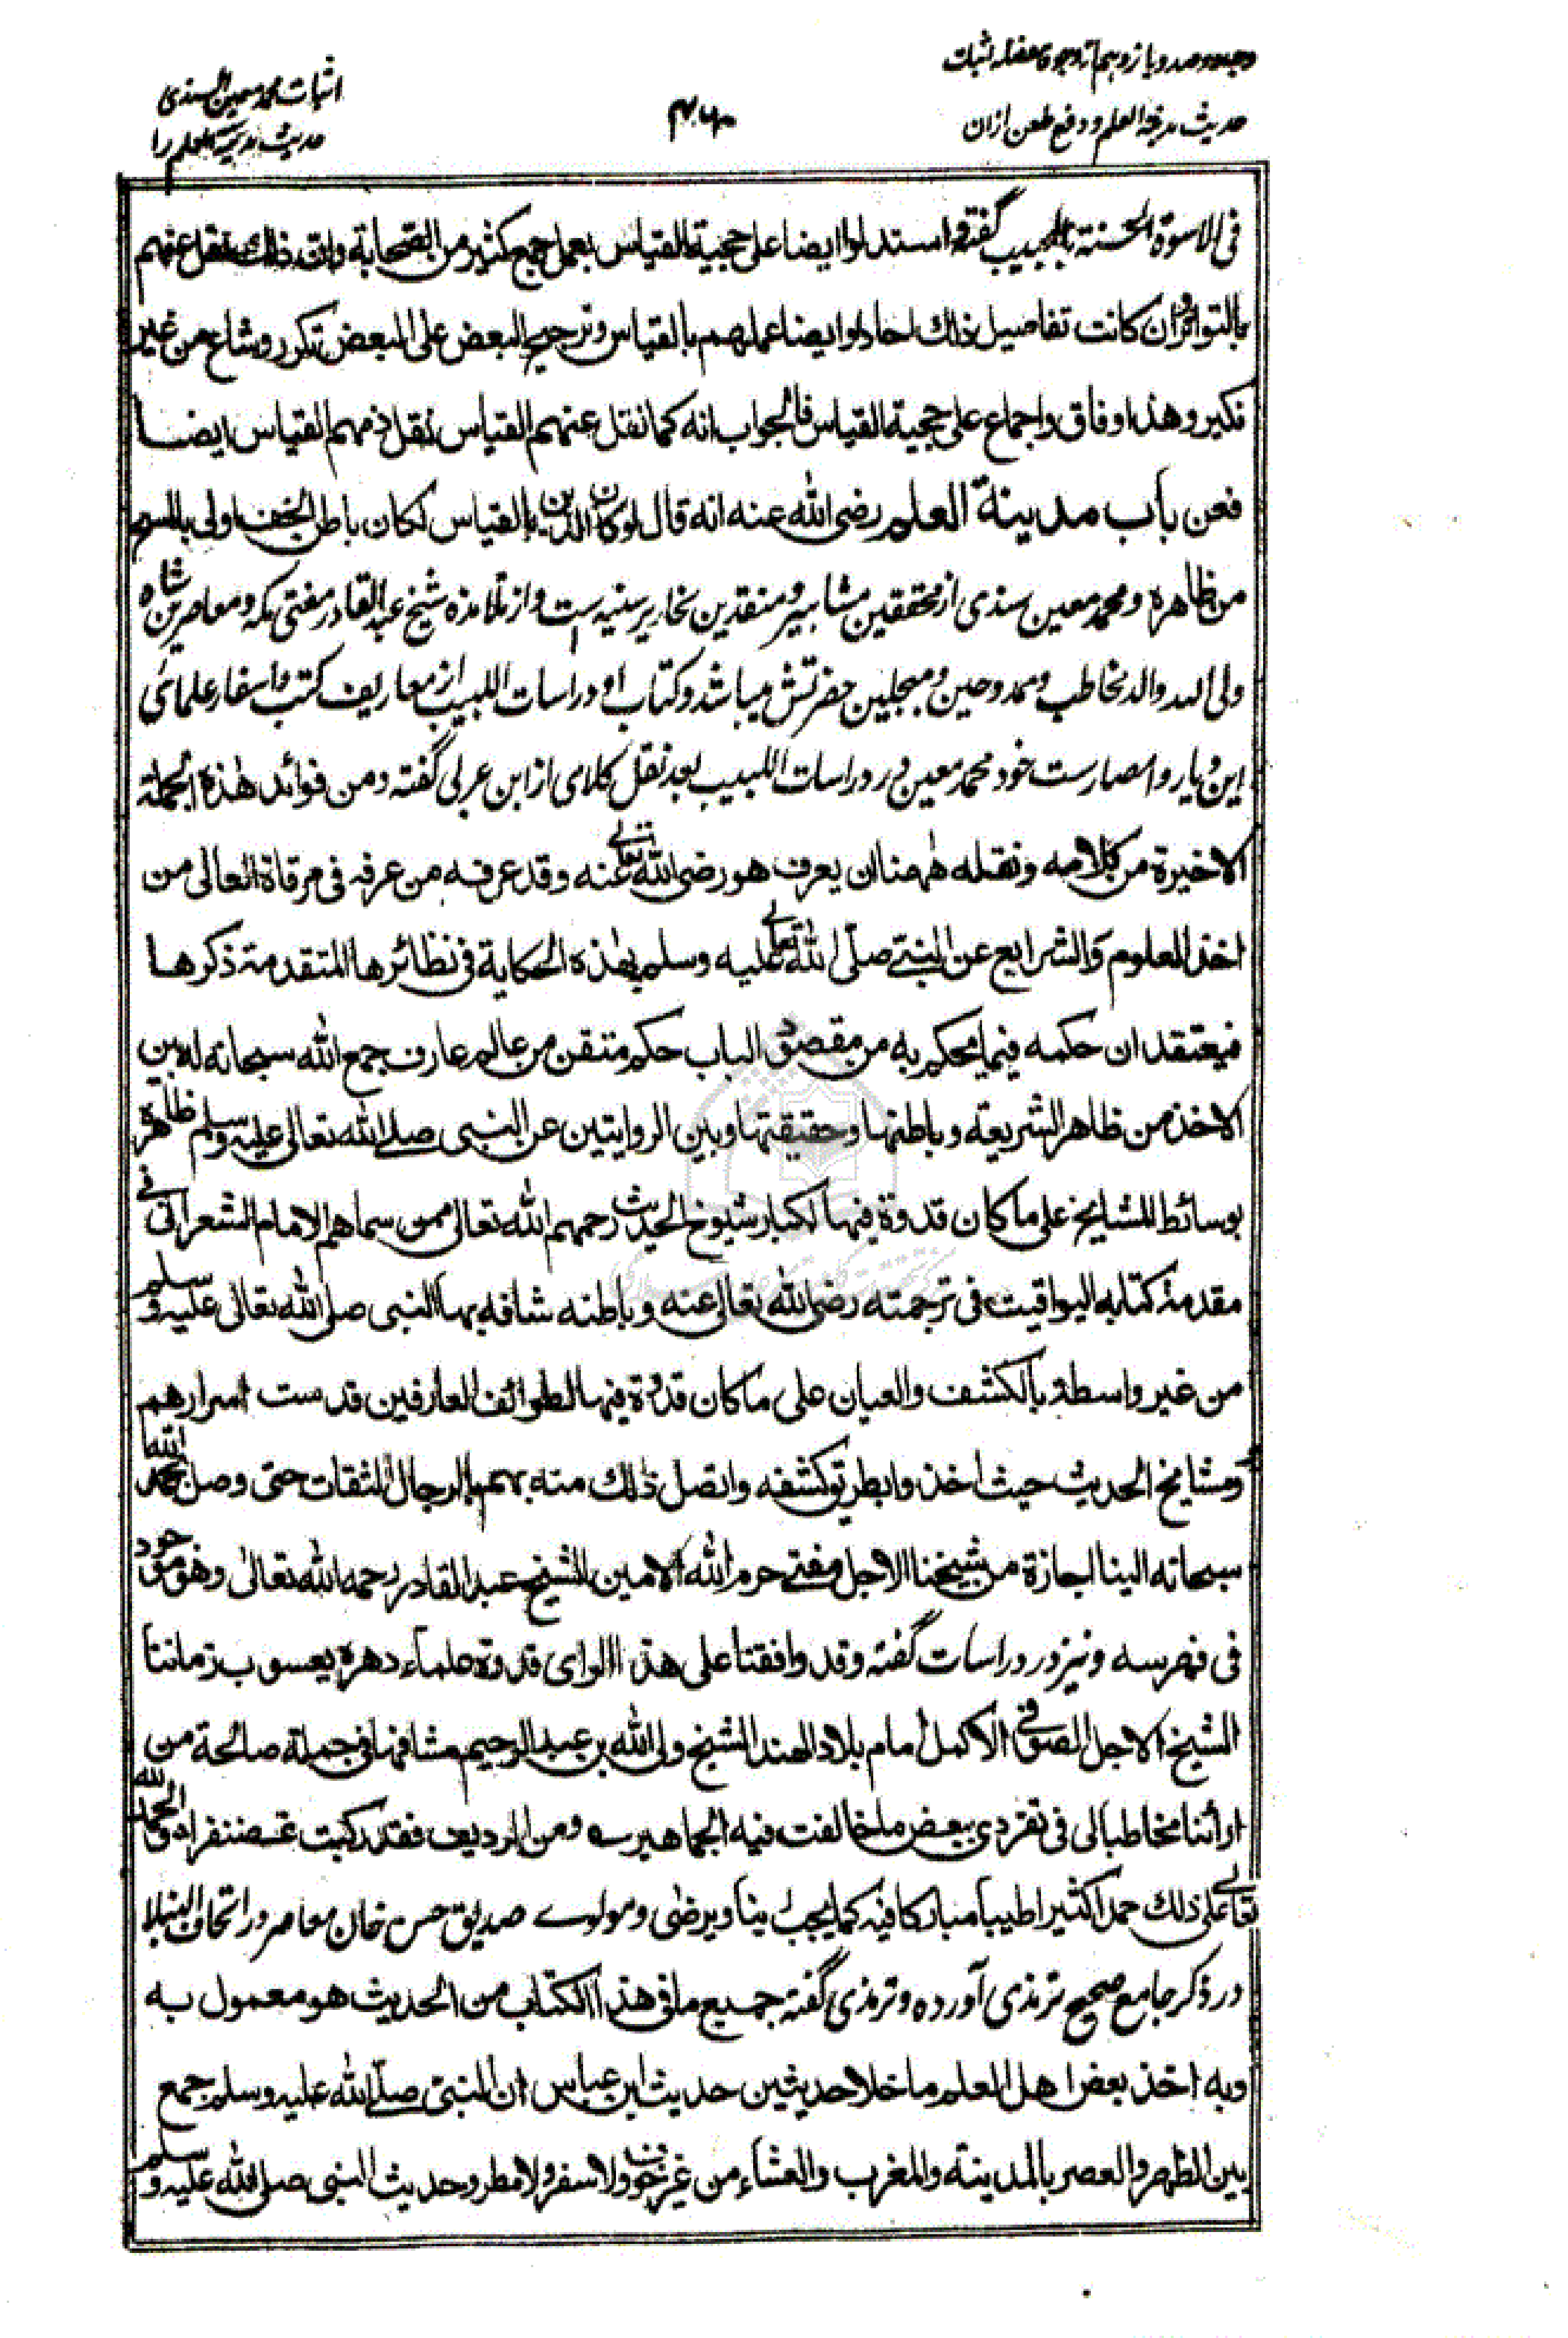 وجه دوصد و یازدهم از وجوه مفصله اثبات
حدیث مدینة العلم و دفع طعن ازان
۴۷۶
اثبات محمد معین السندی
حدیث مدینة العلم را
فی الاسوة الحسنة بالحبیب گفته و استدلوا ایضا علی حجیة القیاس بعمل جمع کثیر من الصحابة وان ذلك نقل عنهم
بالتواتر وان کانت تفاصیل ذلك احادا وایضا عملهم بالقیاس وترجیح البعض علی البعض تکرر وشاع من غیر
نکیر وهذا وفاق واجماع علی حجیة القیاس فالجواب انه کما نقل عنهم القیاس نقل ذمهم القیاس ایضا
فعن باب مدینة العلم رضی الله عنه انه قال لو کان الدین بالقیاس لکان باطن الخف اولی بالمسح
من ظاهره و محمد معین سندی از محققین مشاهیر و منقدین نحاریر سنیه است و از تلامذه شیخ عبد القادر مفتی مکه و معاصرین شاه
ولی الله والد مخاطب و ممدوحین و مبجلین حضرتش میباشد و کتاب او دراسات اللبیب از معاریف کتب و اسفار علمای
این دیار و امصار ست خود محمد معین در دراسات اللبیب بعد نقل کلامی از ابن عربی گفته ومن فوائد هذه الجملة
الاخیرة من کلامه ونقله ههنا ان یعرف هو رضی الله تعالی عنه وقد عرفه من عرفه فی مرقاة العالی من
اخذ العلوم والشرایع عن النبی صلی الله تعالی علیه وسلم بهذه الحکایة فی نظائرها المتقدمة ذکرها
فیعتقد ان حکمه فیما یحکم به من مقصود الباب حکم متقن من عالم عارف جمع الله سبحانه له بین
الاخذ من ظاهر الشریعة وباطنها وحقیقتها وبین الروایتین عن النبی صلی الله تعالی علیه وسلم ظاهرة
بوسائط المشایخ علی ما کان قدوة فیها لکبار شیوخ الحدیث رحمهم الله تعالی ممن سماهم الامام الشعرانی فی
مقدمة کتابه الیواقیت فی ترجمته رضی الله تعالی عنه وباطنه شافه بها النبی صلی الله تعالی علیه وسلم
من غیر واسطة بالکشف والعیان علی ما کان قدوة فیها لطوائف العارفین قدست اسرارهم
ومشایخ الحدیث حیث اخذوا بطریق کشفه واتصل ذلك منه بهم بالرجال الثقات حتی وصل بحمد الله
سبحانه الینا اجازة من شیخنا الاجل مفتی حرم الله الامین الشیخ عبد القادر رحمه الله تعالی وهو موجود
فی فهرسه و نیز در دراسات گفته وقد وافقنا علی هذا الرای قدوة علماء دهره یعسوب زماننا
الشیخ الاجل الصوفی الاکمل امام بلاد الهند الشیخ ولی الله بن عبد الرحیم مشافها فی جملة صالحة من
ارائنا مخاطبا لی فی تفردی ببعض ما خالفت فیه الجماهیر ومن الردیف فقد رکبت غضنفرا والحمد لله
تعالی علی ذلك حمدا کثیرا طیبا مبارکا فیه کما یحب ربنا ویرضی و مولوی صدیق حسن خان معاصر در اتحاف النبلا
در ذکر جامع صحیح ترمذی آورده و ترمذی گفته جمیع ما فی هذا الکتاب من الحدیث هو معمول به
وبه اخذ بعض اهل العلم ما خلا حدیثین حدیث ابن عباس ان النبی صلی الله علیه وسلم جمع
بین الظهر والعصر بالمدینة والمغرب والعشاء من غیر خوف ولا سفر ولا مطر وحدیث النبی صلی الله علیه وسلم